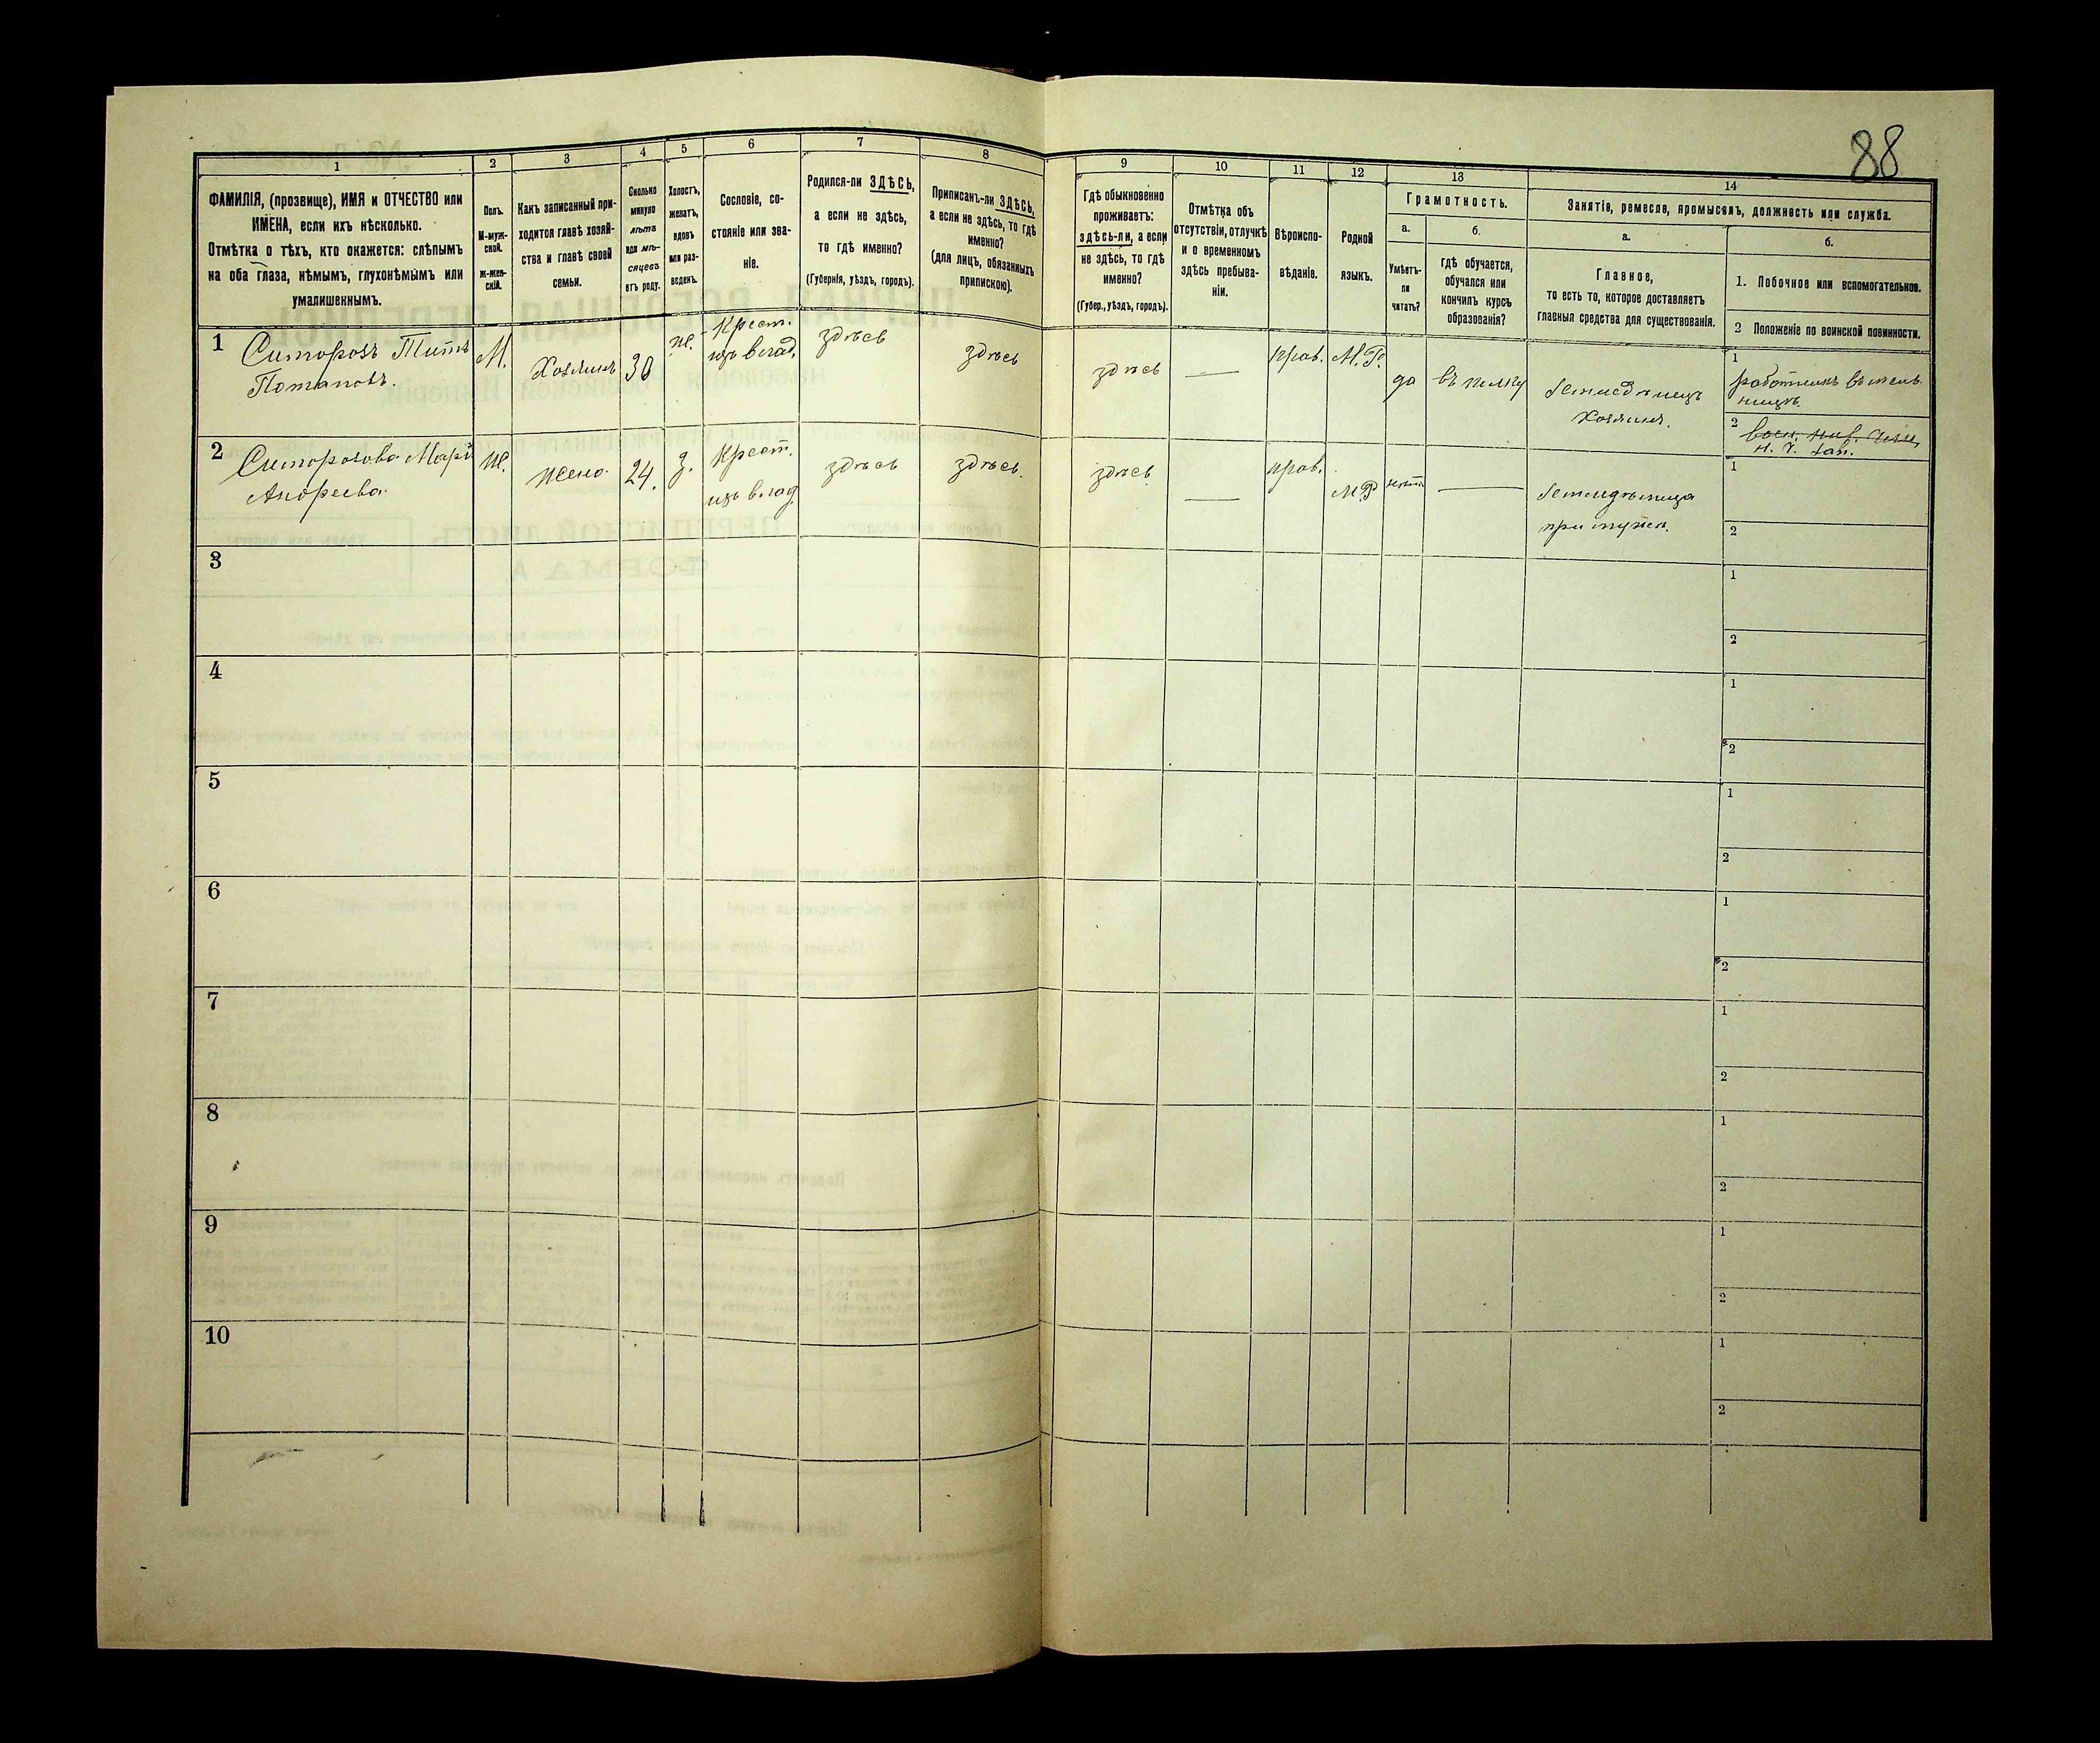 88
1
2
3
4
5
6
7
8
9
10
11
12
13
14
ФАМИЛІЯ, (прозвище), ИМЯ и ОТЧЕСТВО или
ИМЕНА, если ихъ нѣсколько.
Отмѣтка о тѣхъ, кто окажется: слѣпымъ
на оба глаза, нѣмымъ, глухонѣмымъ или
умалишеннымъ.
Полъ.
М-муж-
ской.
Ж-жен-
скій.
Какъ записанный при-
ходится главѣ хозяй-
ства и главѣ своей
семьи.
Сколько
минуло
лѣтъ
или мѣ-
сяцевъ
отъ роду.
Холостъ,
женатъ,
вдовъ
или раз-
веденъ.
Сословіе, со-
стояніе или зва-
ніе.
Родился-ли ЗДѢСЬ,
а если не здѣсь,
то гдѣ именно?
(Губернія, уѣздъ, городъ).
Приписанъ-ли ЗДѢСЬ,
а если не здѣсь, то гдѣ
именно?
(для лицъ, обязанныхъ
припискою).
Гдѣ обыкновенно
проживаетъ:
здѣсь-ли, а если
не здѣсь, то гдѣ
именно?
(Губер., уѣздъ, городъ).
Отмѣтка объ
отсутствіи, отлучкѣ
и о временномъ
здѣсь пребыва-
ніи.
Вѣроиспо-
вѣданіе.
Родной
языкъ.
Грамотность.
а.
Умѣетъ-
ли
читать?
б.
гдѣ обучается,
обучался или
кончилъ курсъ
образованія?
Занятіе, ремесло, промыселъ, должность или служба.
а.
Главное,
то есть то, которое доставляетъ
главныя средства для существованія.
б.
1. Побочное или вспомогательное.
2 Положеніе по воинской повинности.
1
Ситорозъ Титъ
Потаповъ.
М.
Хозяинъ
30
ж.
Крест.
изъ влад.
здѣсь
здѣсь
здѣсь
—
прав.
М.Р.
да
въ полку
Земледѣлецъ
Хозяинъ.
1
работникъ въ мель-
ницѣ.
2
2
Ситорозова
Андреева
ж.
жена
24.
з.
Крест.
изъ влад.
здѣсь
здѣсь.
здѣсь
—
прав.
М.Р
нѣтъ
—
Земледѣлица
при мужѣ.
1
2
3
1
2
4
1
2
5
1
2
6
1
2
7
1
2
8
1
2
9
1
2
10
1
2